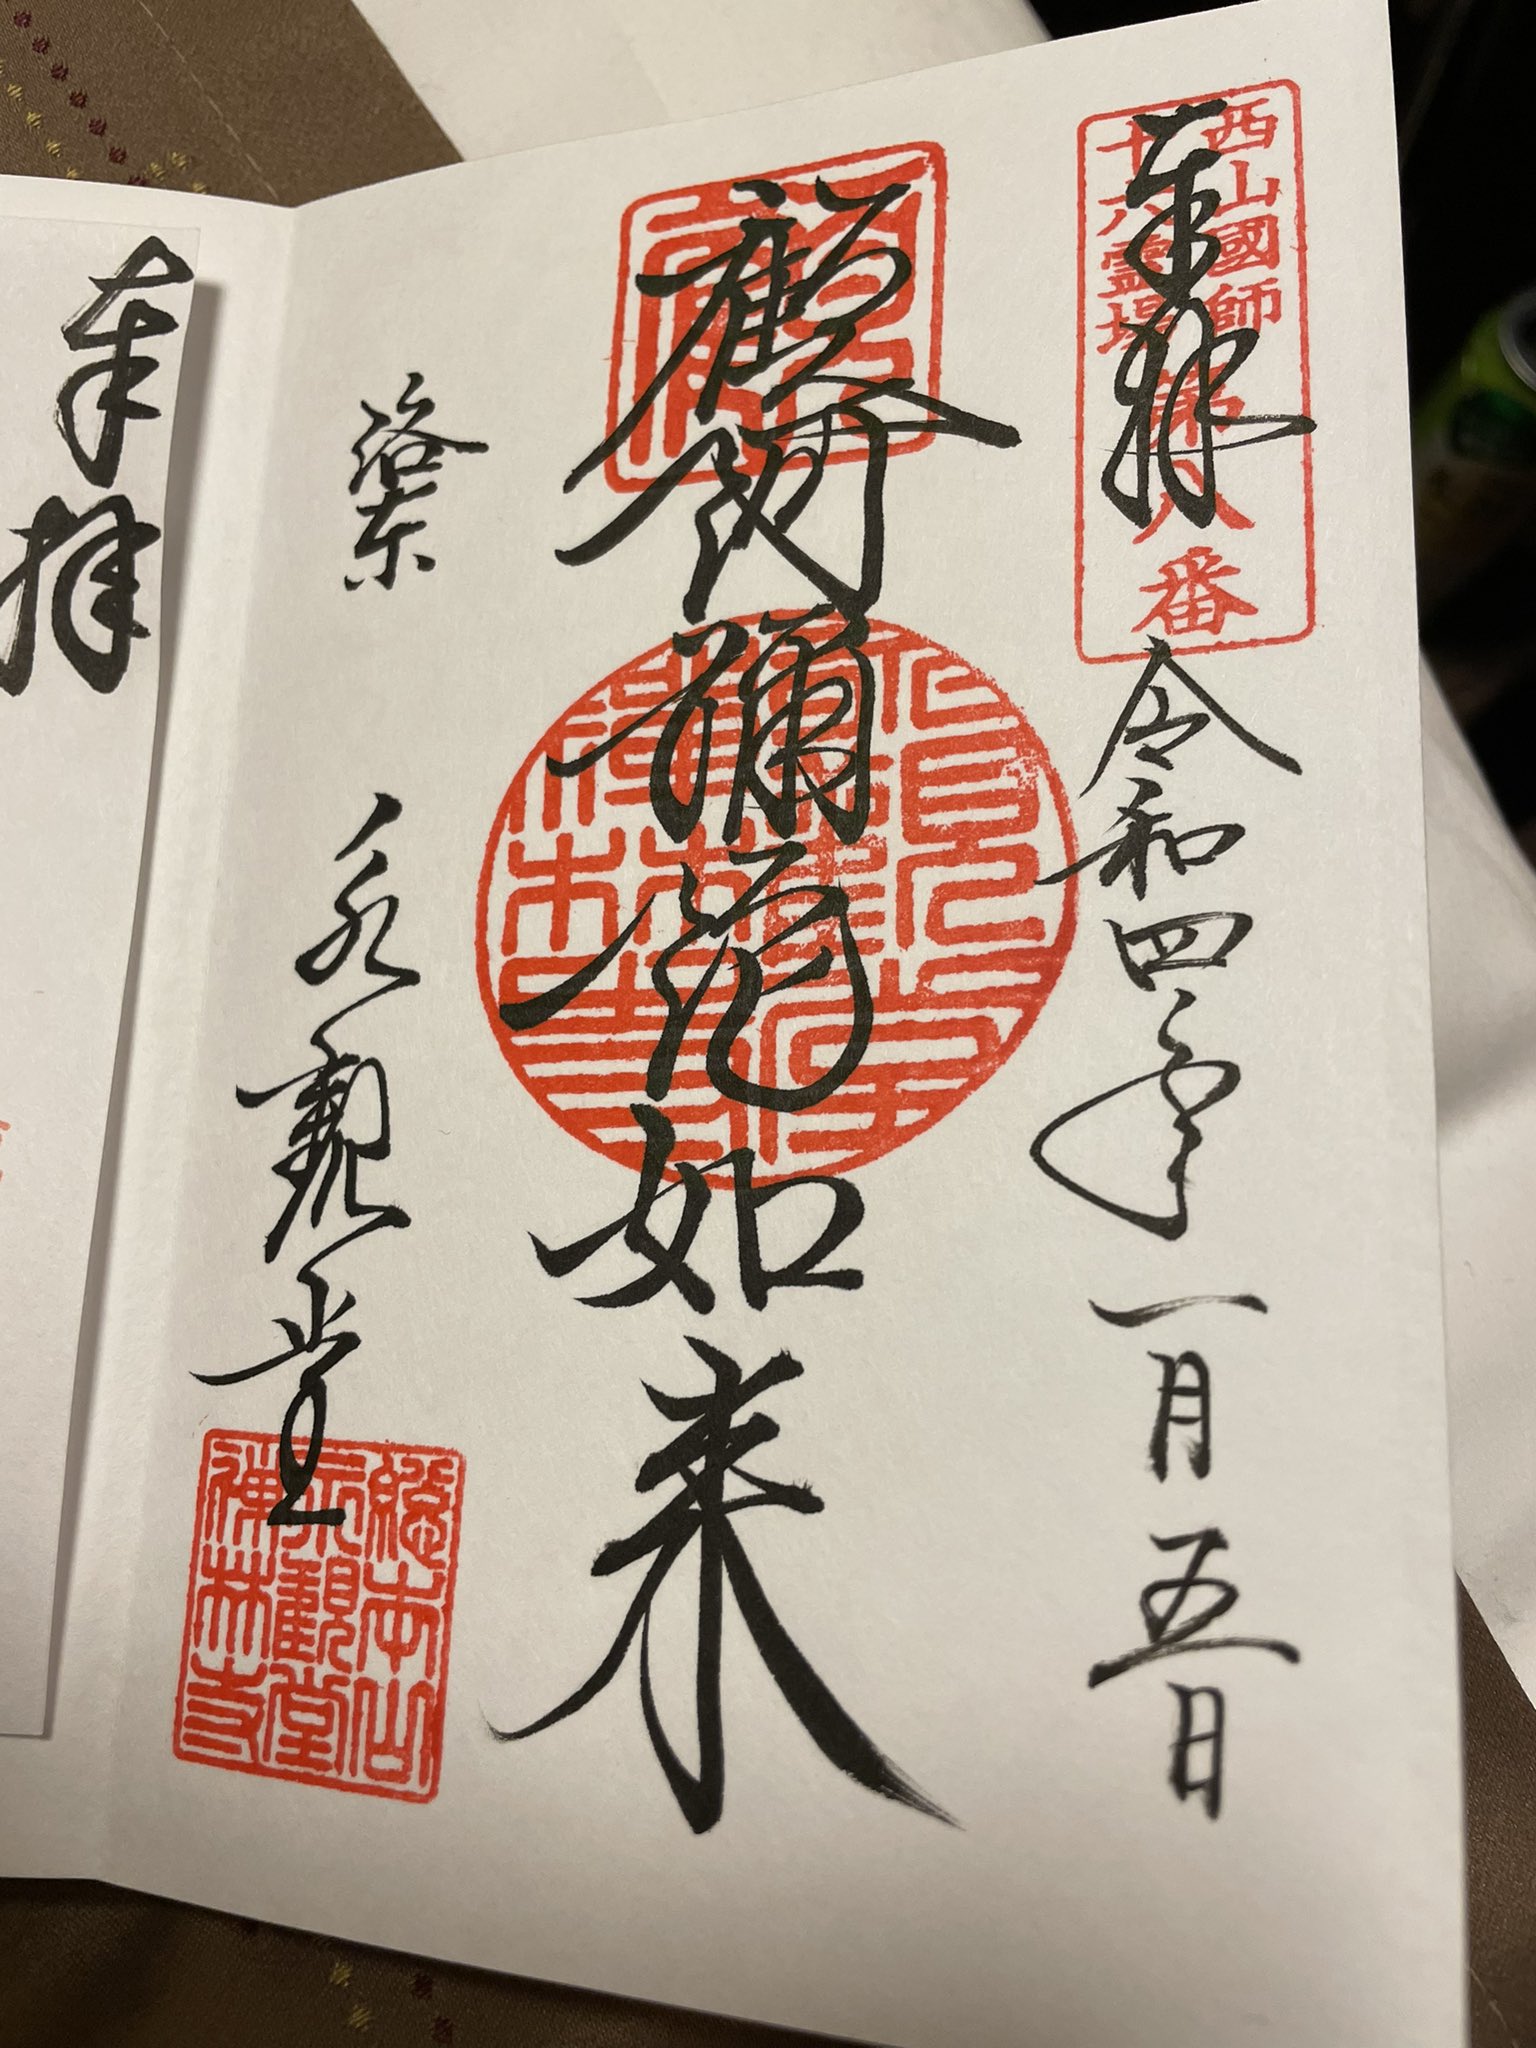 西山國師
十六霊場
第八番
奉拝
令和四年一月五日
顧阿彌陀如来
洛東
永観堂
総本山
永観堂
禅林寺
奉拝